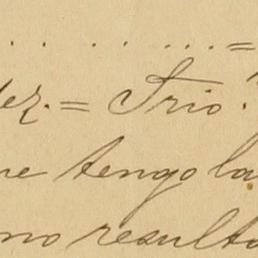 . . . . . . . =
ez. = Trio.
ue tengo la
mo resulta